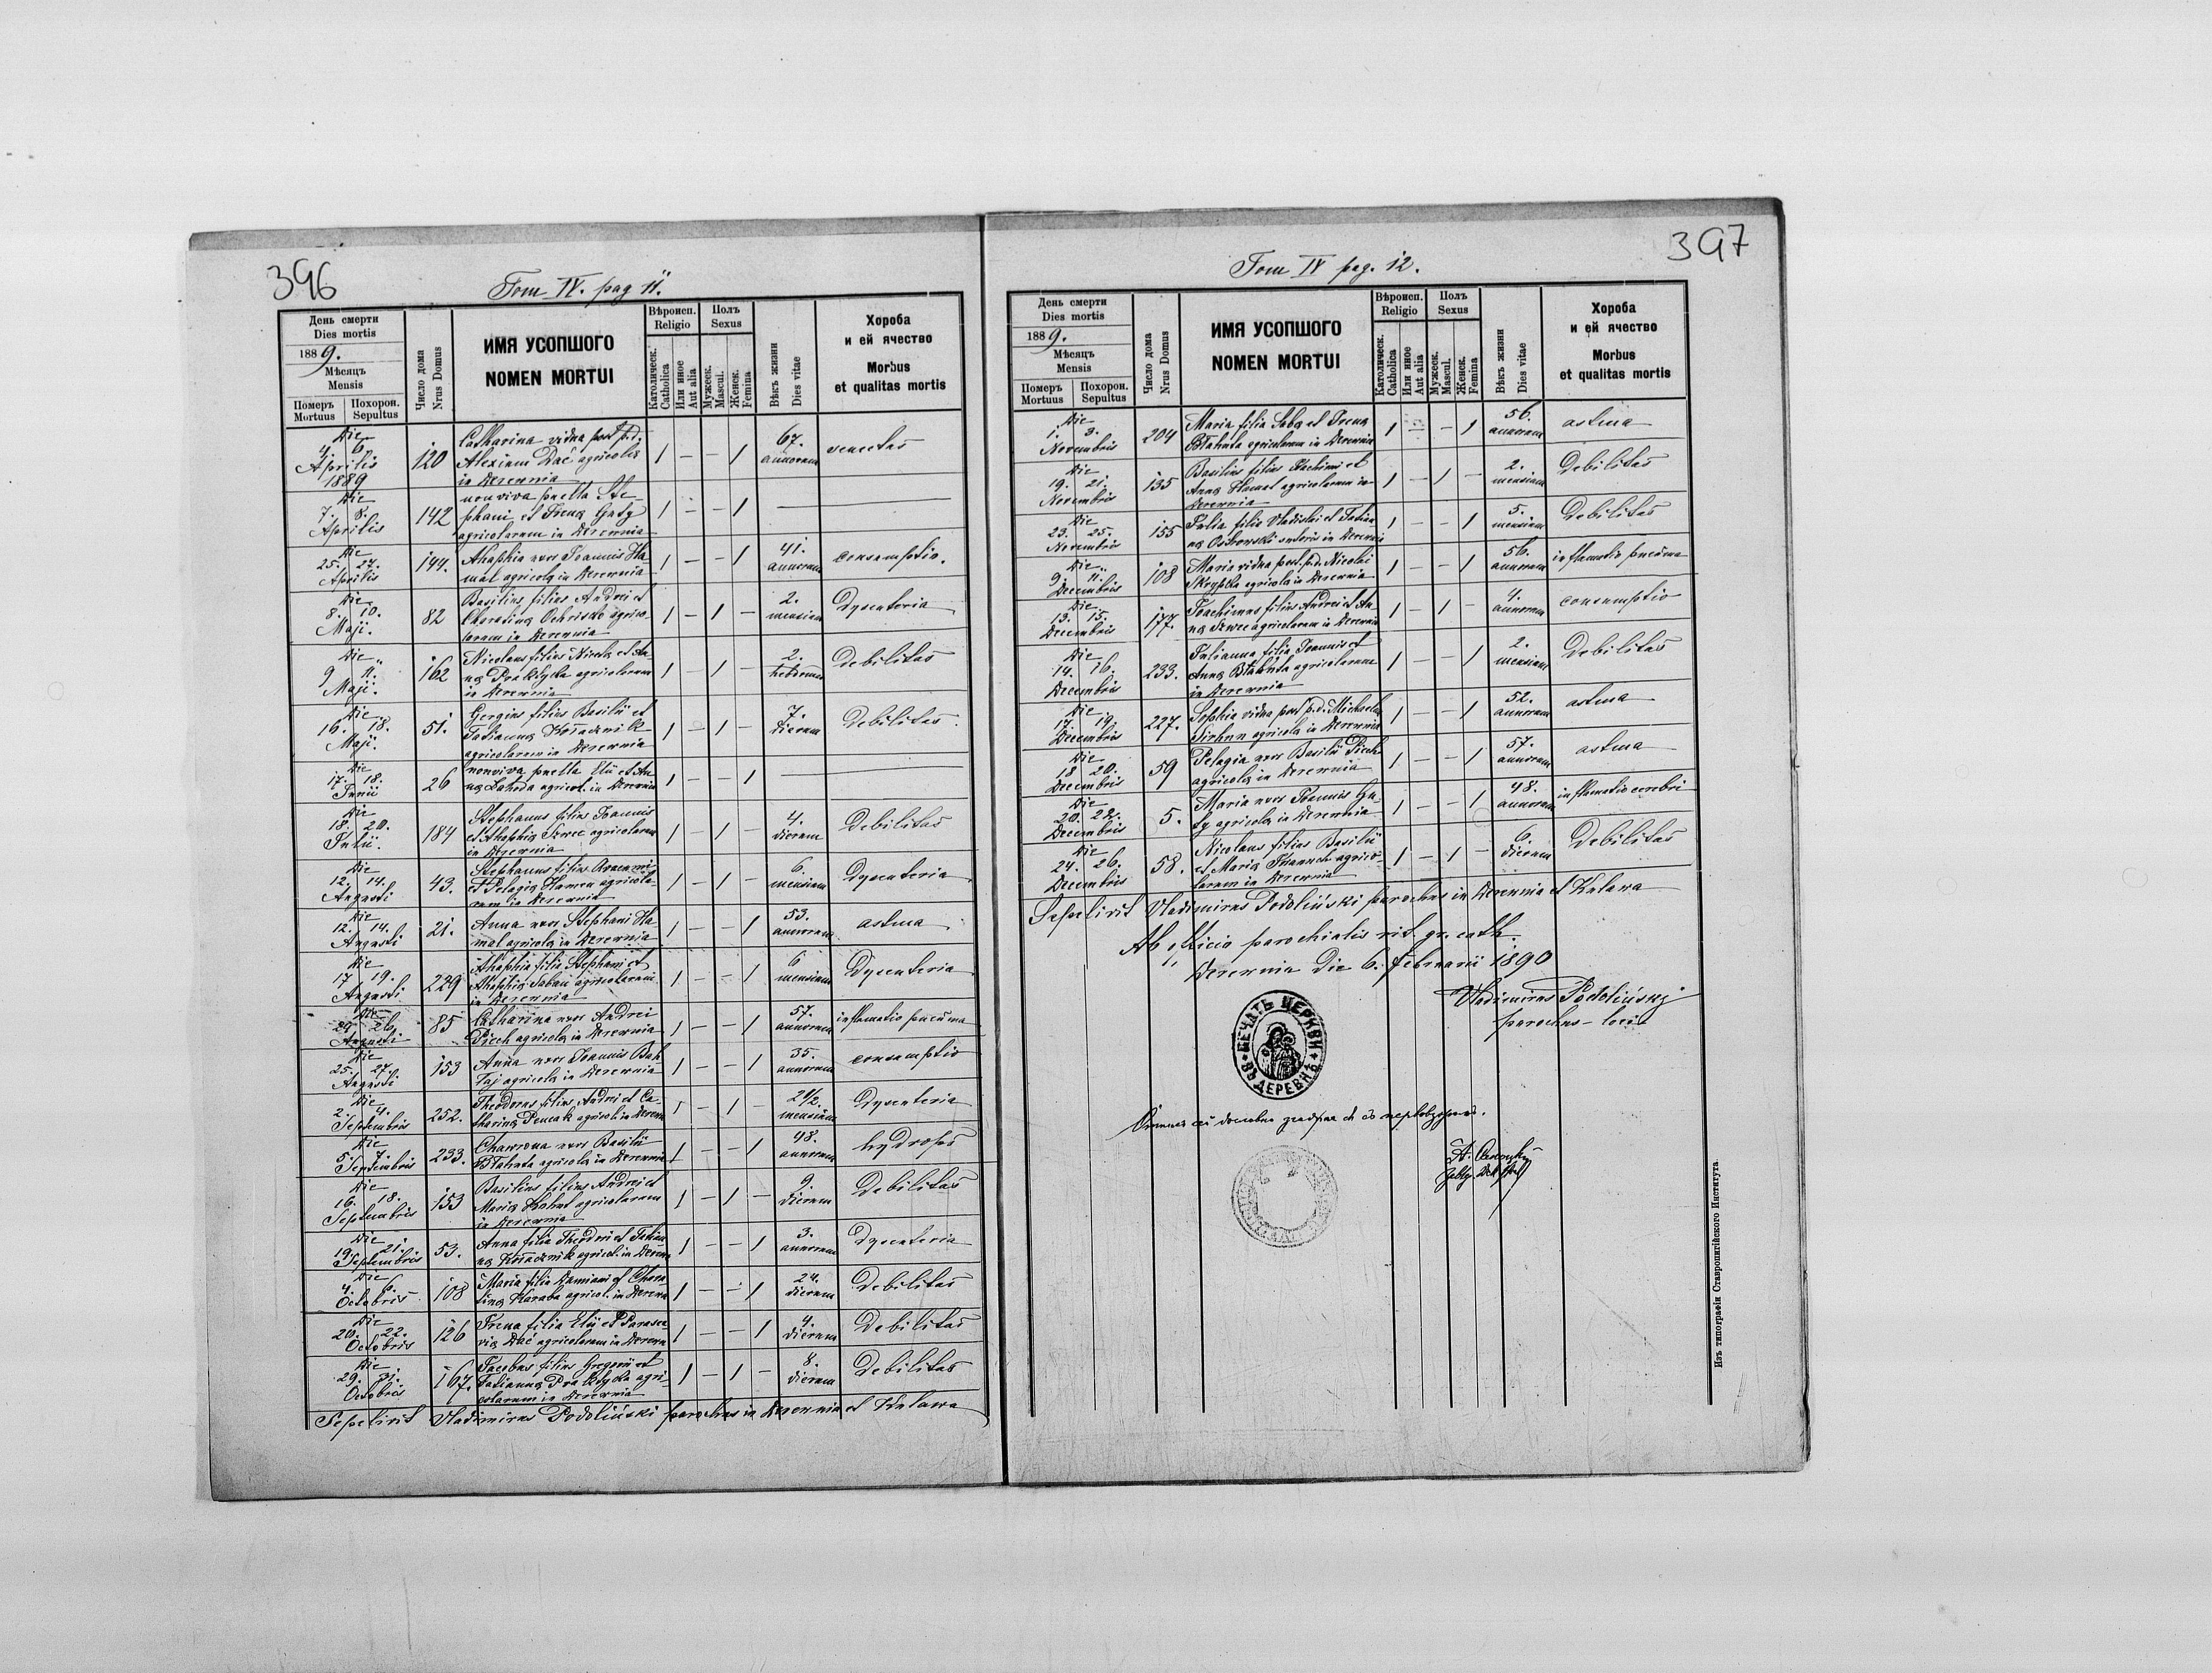 396
Tom IV. pag 11.
День смерти
Dies mortis
1889.
Мѣсяцъ
Mensis
Померъ
Mortuus
Похорон.
Sepultus
Число дома
Nrus Domus
ИМЯ УСОПШОГО
NOMEN MORTUI
Вѣроисп.
Religio
Католическ.
Catholica
Или иное
Aut alia
Полъ
Sexus
Мужеск.
Mascul.
Женск.
Femina
Вѣкъ жизни
Dies vitae
Хороба
и ей ячество
Morbus
et qualitas mortis
Die
4. 6.
Aprilis
1889
120
Catharina vidua post p. d.
Alexium Dać agricola
in Derewnia
1 – – 1
67.
annorum
senectus
Die
7. 8.
Aprilis
142
non viva puella Ste-
phani et Irena
agricolarum in Derewnia
1 – – 1
Die
25. 27.
Aprilis
144.
Ahaphia uxor Joannis Ha-
mal agricola in Derewnia
1 – – 1
41.
annorum
consumptio.
Die
8. 10.
Maji.
82
Basilius filius Andrei et
agrico-
larum in Derewnia
1 – 1 –
2.
mensium
Dysenteria
Die
9 11.
Maji.
162
Nicolaus filius Nicola et An-
na agricolarum
in Derewnia
1 – 1 –
2.
hebdomad
Debilitas
Die
16. 18.
Maji.
51.
Gergius filius Basilii et
Tatianna
agricolarum in Derewnia
1 – 1 –
7.
dierum
Debilitas
Die
17. 18.
Junii
26
non viva puella Elii et An-
na agricol. in Derewnia
1 – – 1
Die
18. 20.
Julii.
184
Stephanus filius Joannis
et Ahaphia Szwec agricolarum
in Derewnia
1 – 1 –
4.
dierum
Debilitas
Die
12. 14.
Augusti
43.
Stephanus filius
et Pelagia agricola-
rum in Derewnia
1 – 1 –
6.
mensium
Dysenteria
Die
12. 14.
Augusti
21.
Anna uxor Stephani Ha-
mal agricola in Derewnia
1 – – 1
53.
annorum
astma
Die
17 19.
Augusti
229
Ahaphia filia Stephani et
Ahaphia agricolarum
in Derewnia
1 – – 1
6
mensium
Dysenteria
Die
24 26
Augusti
85
Catharina uxor Andrei
Piech agricola in Derewnia
1 – – 1
57.
annorum
inflamatio pneuma
Die
25. 27.
Augusti
153
Anna uxor Joannis
agricola in Derewnia
1 – – 1
35.
annorum
consumptio
Die
2. 4.
Septembris
252.
Theodorus filius Andrei et Ca-
tharina agricol. in Derewn
1 – 1 –
2 1/2.
mensium
Dysenteria
Die
5. 7.
Septembris
233.
uxor Basilii
Błahuta agricola in Derewnia
1 – – 1
48.
annorum
hydrops
Die
16. 18.
Septembris
153
Basilius filius Andrei et
Maria agricolarum
in Derewnia
1 – 1 –
9.
dierum
Debilitas
Die
19. 21.
Septembris
53.
Anna filia Theodori et Tatian-
na agricol. in Derewn
1 – – 1
3.
annorum
Dysenteria
Die
4. 6.
Octobris
108
Maria filia Damiani et
Haraba agricol. in Derewn
1 – – 1
24.
dierum
Debilitas
Die
20. 22.
Octobris
126
Irena filia Elii et Parasce-
via Dać agricolarum in Derewn
1 – – 1
4.
dierum
Debilitas
Die
29. 31.
Octobris
167.
Jacobus filius Gregorii et
Tatianna agri-
colarum in Derewnia
1 – 1 –
8.
dierum
Debilitas
Sepelivit Vladimirus Podoliński parochus in Derewnia et Kulawa
397
Tom IV pag. 12.
День смерти
Dies mortis
1889.
Мѣсяцъ
Mensis
Померъ
Mortuus
Похорон.
Sepultus
Число дома
Nrus Domus
ИМЯ УСОПШОГО
NOMEN MORTUI
Вѣроисп.
Religio
Католическ.
Catholica
Или иное
Aut alia
Полъ
Sexus
Мужеск.
Mascul.
Женск.
Femina
Вѣкъ жизни
Dies vitae
Хороба
и ей ячество
Morbus
et qualitas mortis
Die
1. 3.
Novembris
204
Maria filia Saba et Irena
Błahuta agricolarum in Derewnia
1 – – 1
56.
annorum
astma
Die
19. 21.
Novembris
135
Basilius filius et
Anna agricolarum in
Derewnia
1 – 1 –
2.
mensium
Debilitas
Die
23. 25.
Novembris
155
Julia filia Vladislai et Tatian-
na Ostrowski sutoris in Derewnia
1 – – 1
5.
mensium
Debilitas
Die
9. 11.
Decembris
108
Maria vidua post p. d. Nicolai
Skrypka agricola in Derewnia
1 – – 1
56.
annorum
inflamatio pneuma
Die
13. 15.
Decembris
177.
Joachimus filius Andrei et An-
na Szwec agricolarum in Derewnia
1 – 1 –
4.
annorum
consumptio
Die
14. 16.
Decembris
233.
Julianna filia Joannis et
Anna Błahuta agricolarum
in Derewnia
1 – – 1
2.
mensium
Debilitas
Die
17. 19.
Decembris
227.
Sophia vidua post p. d. Michaelem
agricola in Derewnia
1 – – 1
52.
annorum
astma
Die
18 20.
Decembris
59
Pelagia uxor Basilii Piech
agricola in Derewnia
1 – – 1
57.
annorum
astma
Die
20. 22.
Decembris
5.
Maria uxor Joannis Gu-
ty agricola in Derewnia
1 – – 1
48.
annorum
inflamatio cerebri
Die
24. 26.
Decembris
58.
Nicolaus filius Basilii
et Maria agrico-
larum in Derewnia
1 – 1 –
6.
dierum
Debilitas
Sepelivit Vladimirus Podoliński parochus in Derewnia et Kulawa
Ab officio parochialis rit. gr. cath.
Derewnia die 6. februarii 1890
Vladimirus Podolińskj
parochus loci
ПЕЧАТЬ ЦЕРКВИ ВЪ ДЕРЕВНѢ
Изъ типографіи Ставропигійского Института.